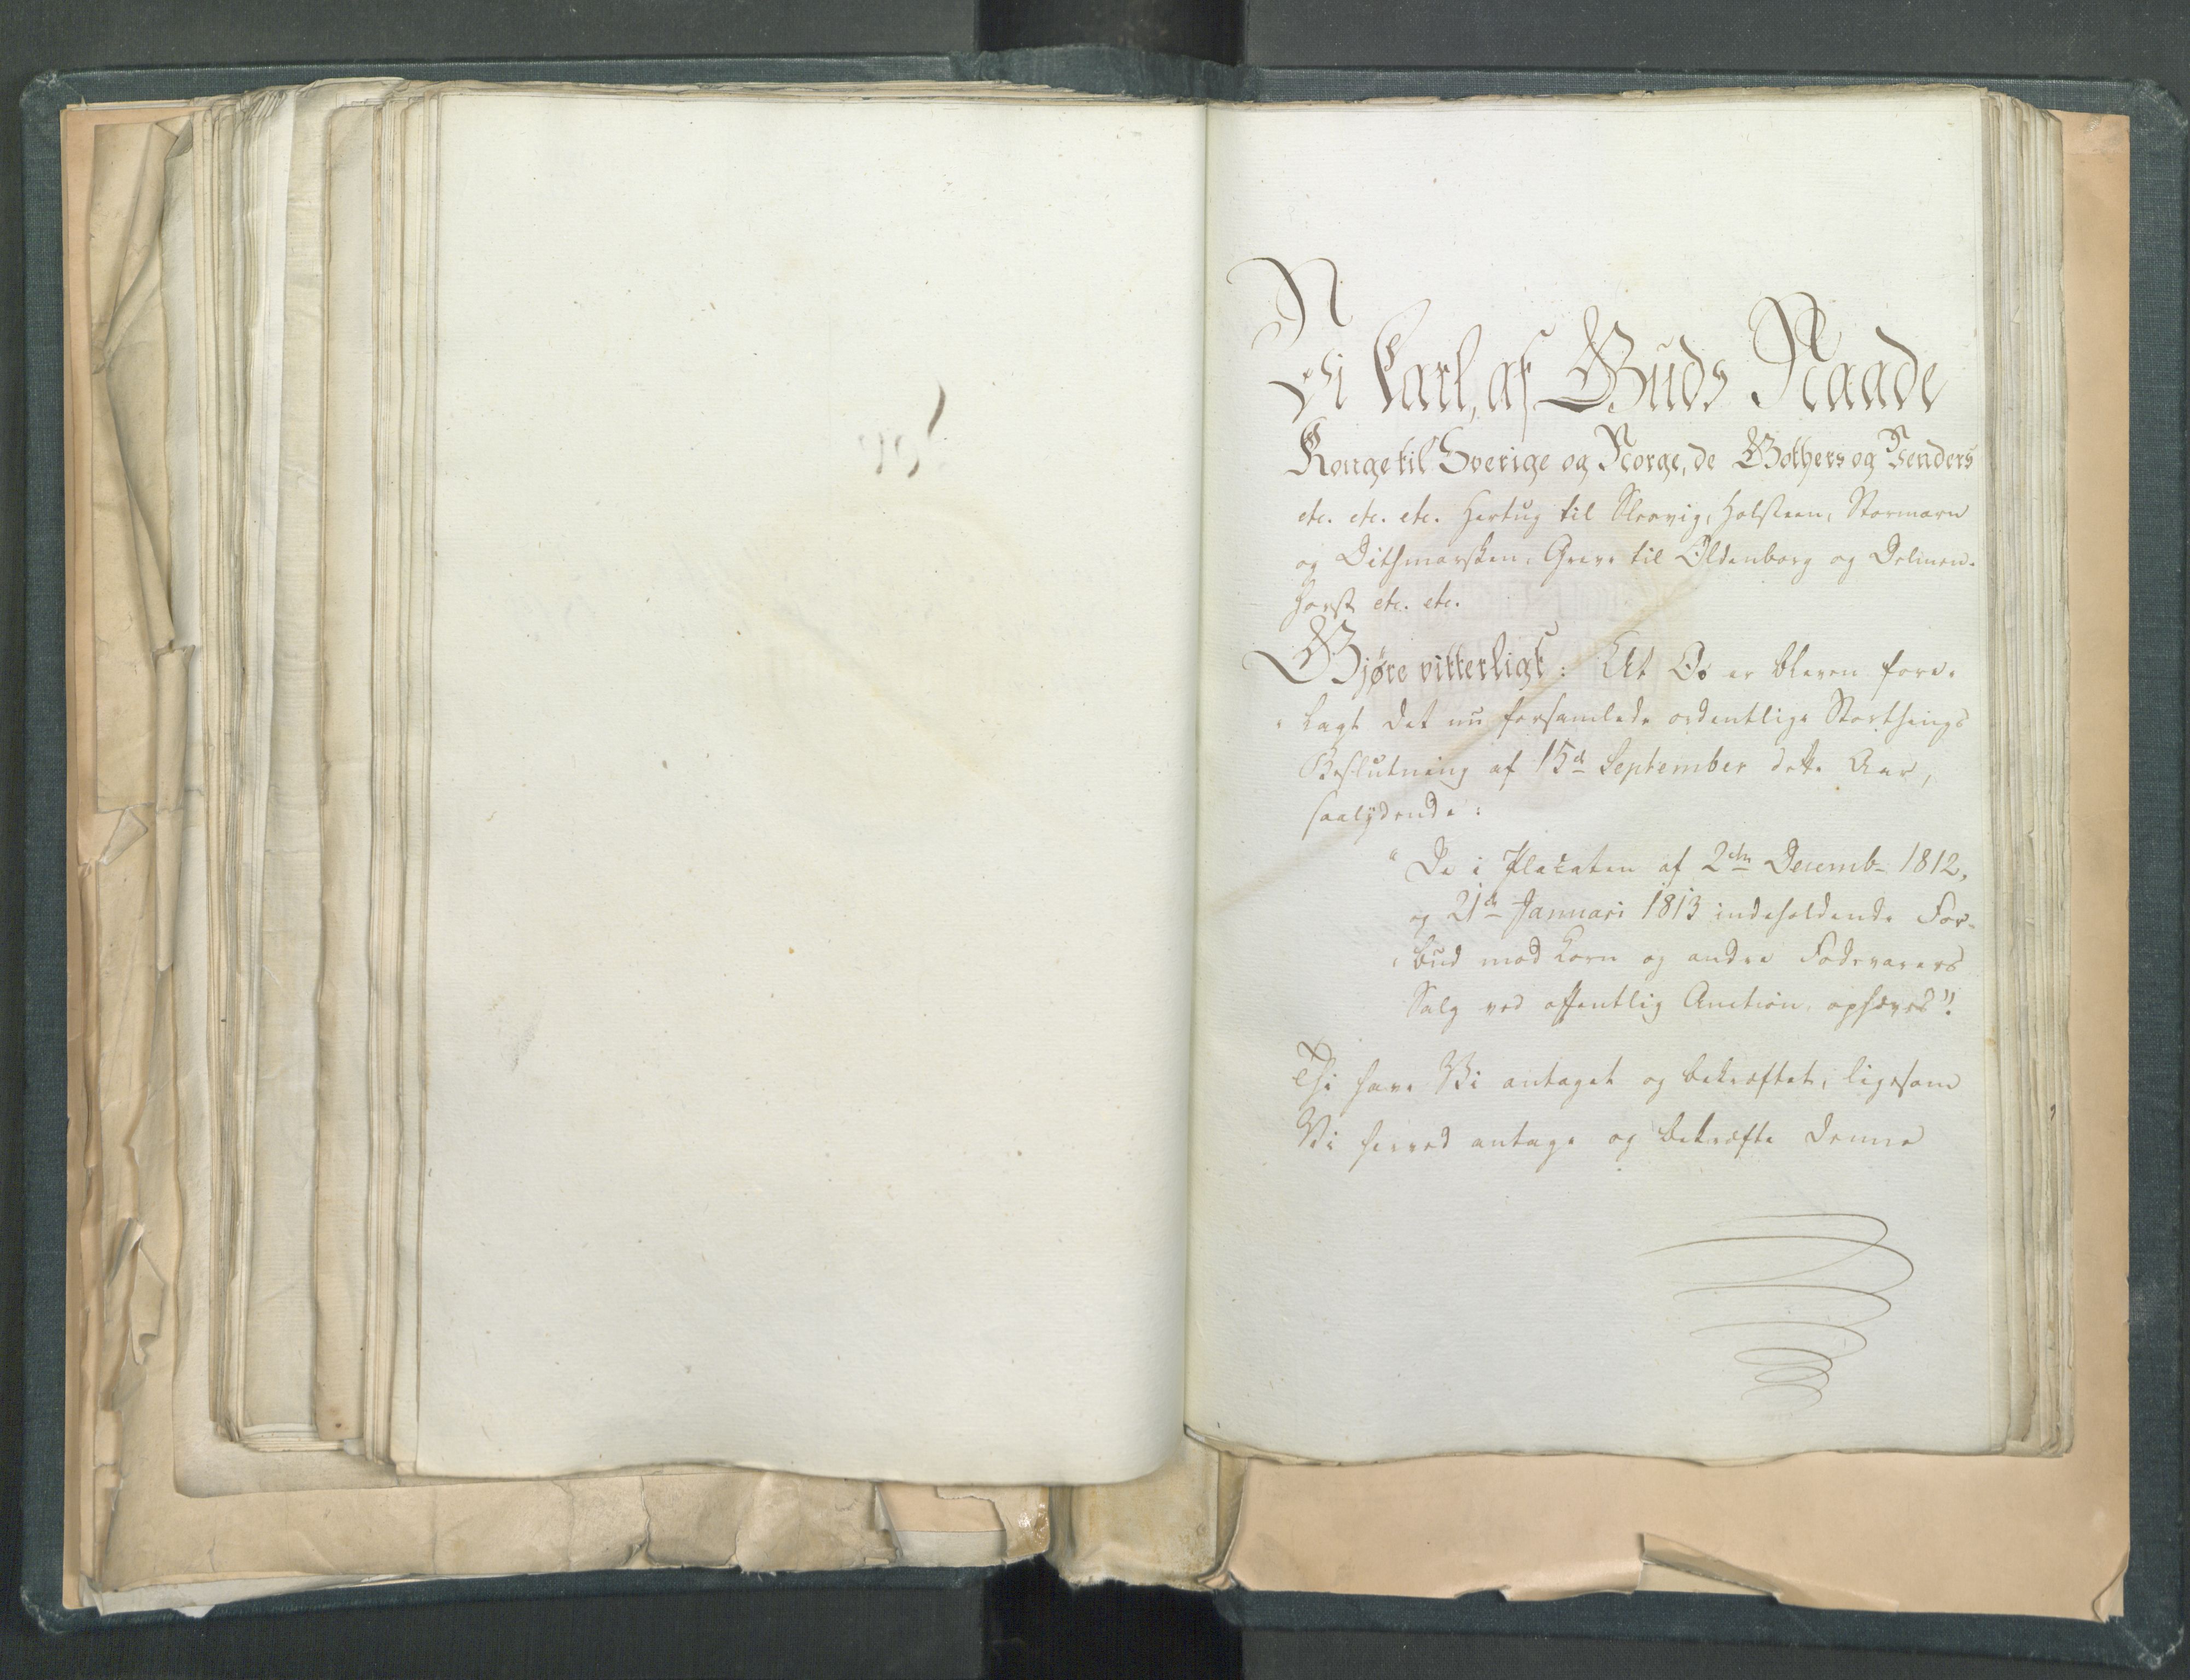 Vi Carl, af Guds Naade
Konge til Sverige og Norge, de Gothers og Venders
etc. etc. etc. Hertug til Slesvig, Holsteen, Stormarn
og Dithmarsken, Greve til Oldenborg og Delmen-
horst etc. etc.
Gjøre vitterligt: At Os er bleven fore-
lagt det nu forsamlede ordentlige Storthings
Beslutning af 15d September dette Aar,
saalydende:
"De i Placaten af 2den Decemb. 1812,
og 21de Januari 1813 indeholdende For-
bud mod Korn og andre Fødevarers
Salg ved offentlig Auction, ophæves".
Thi have Vi antaget og bekræftet, ligesom
Vi herved antage og bekræfte denne